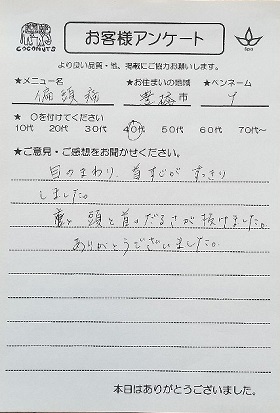 COCONUTS
お客様アンケート
Spa
より良い品質・他、掲載にご協力お願いします。
★メニュー名 ★お住まいの地域 ★ペンネーム
偏頭痛 豊橋市 Y
★ ○を付けてください
10代 20代 30代 40代 50代 60代 70代〜
★ご意見・ご感想をお聞かせください。
目のまわり、首すじが すっきり
しました。
頭と首のだるさが抜けました。
ありがとうございました。
本日はありがとうございました。